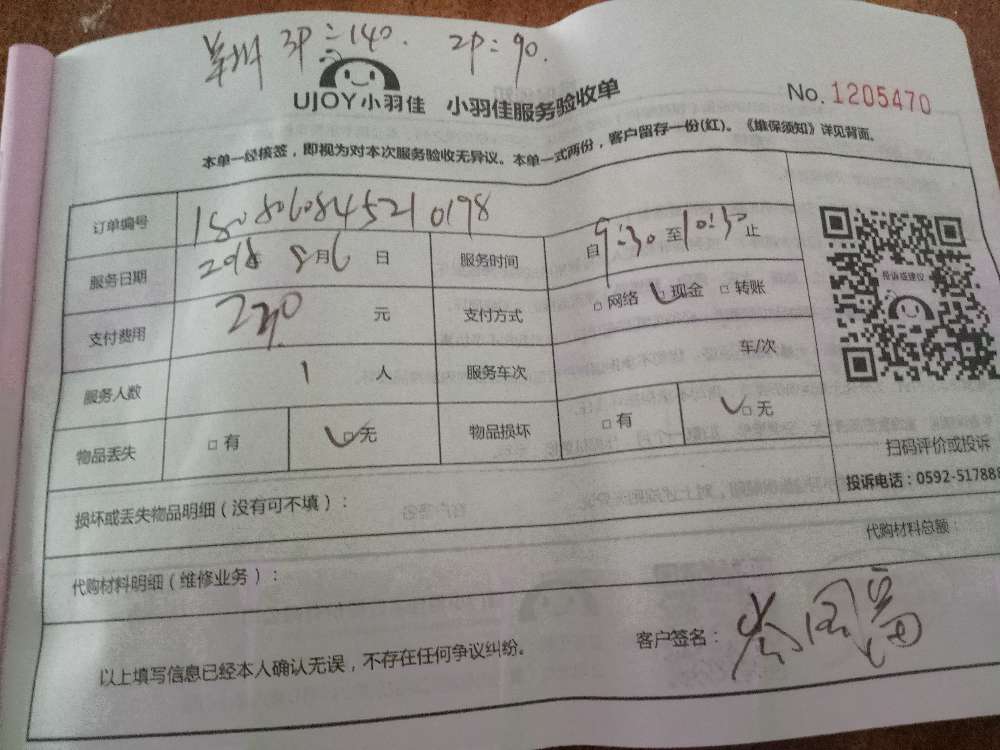 3P=140. 2P=90.
UJOY小羽佳 小羽佳服务验收单
No. 1205470
本单一经核签，即视为对本次服务验收无异议。本单一式两份，客户留存一份(红)。《维保须知》详见背面。
订单编号 180806084521 0198
服务日期 2018年 8月6 日 服务时间 自9:30至10:30止
支付费用 230 元 支付方式 □网络 □现金 □转账
服务人数 1 人 服务车次 车/次
物品丢失 □有 □无 物品损坏 □有 □无
投诉或建议
扫码评价或投诉
投诉电话：0592-517888
损坏或丢失物品明细（没有可不填）：
代购材料明细（维修业务）： 代购材料总额：
以上填写信息已经本人确认无误，不存在任何争议纠纷。 客户签名：